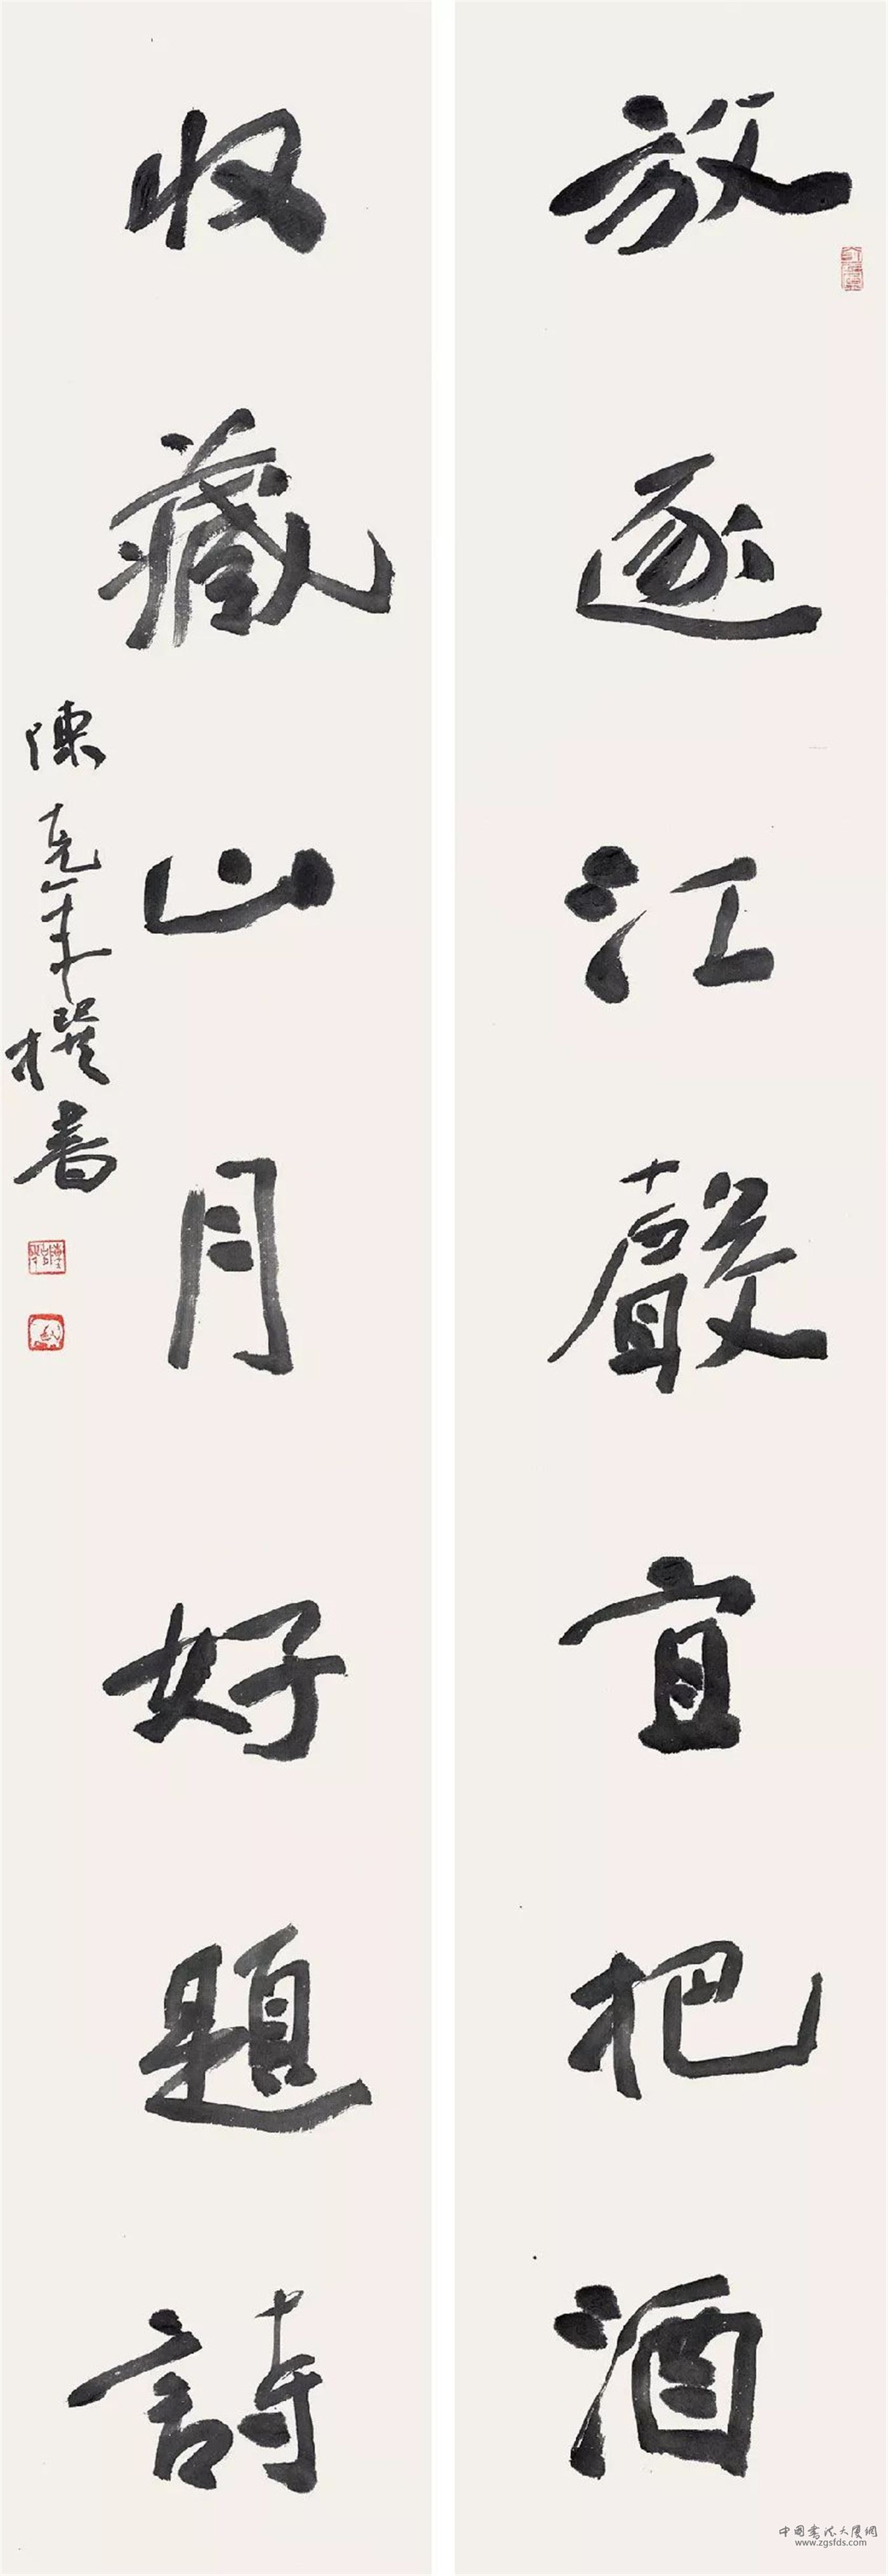 放逐江聲宜把酒
收藏山月好題詩
陳克年撰書
中国书法大厦網
www.zgsfds.com